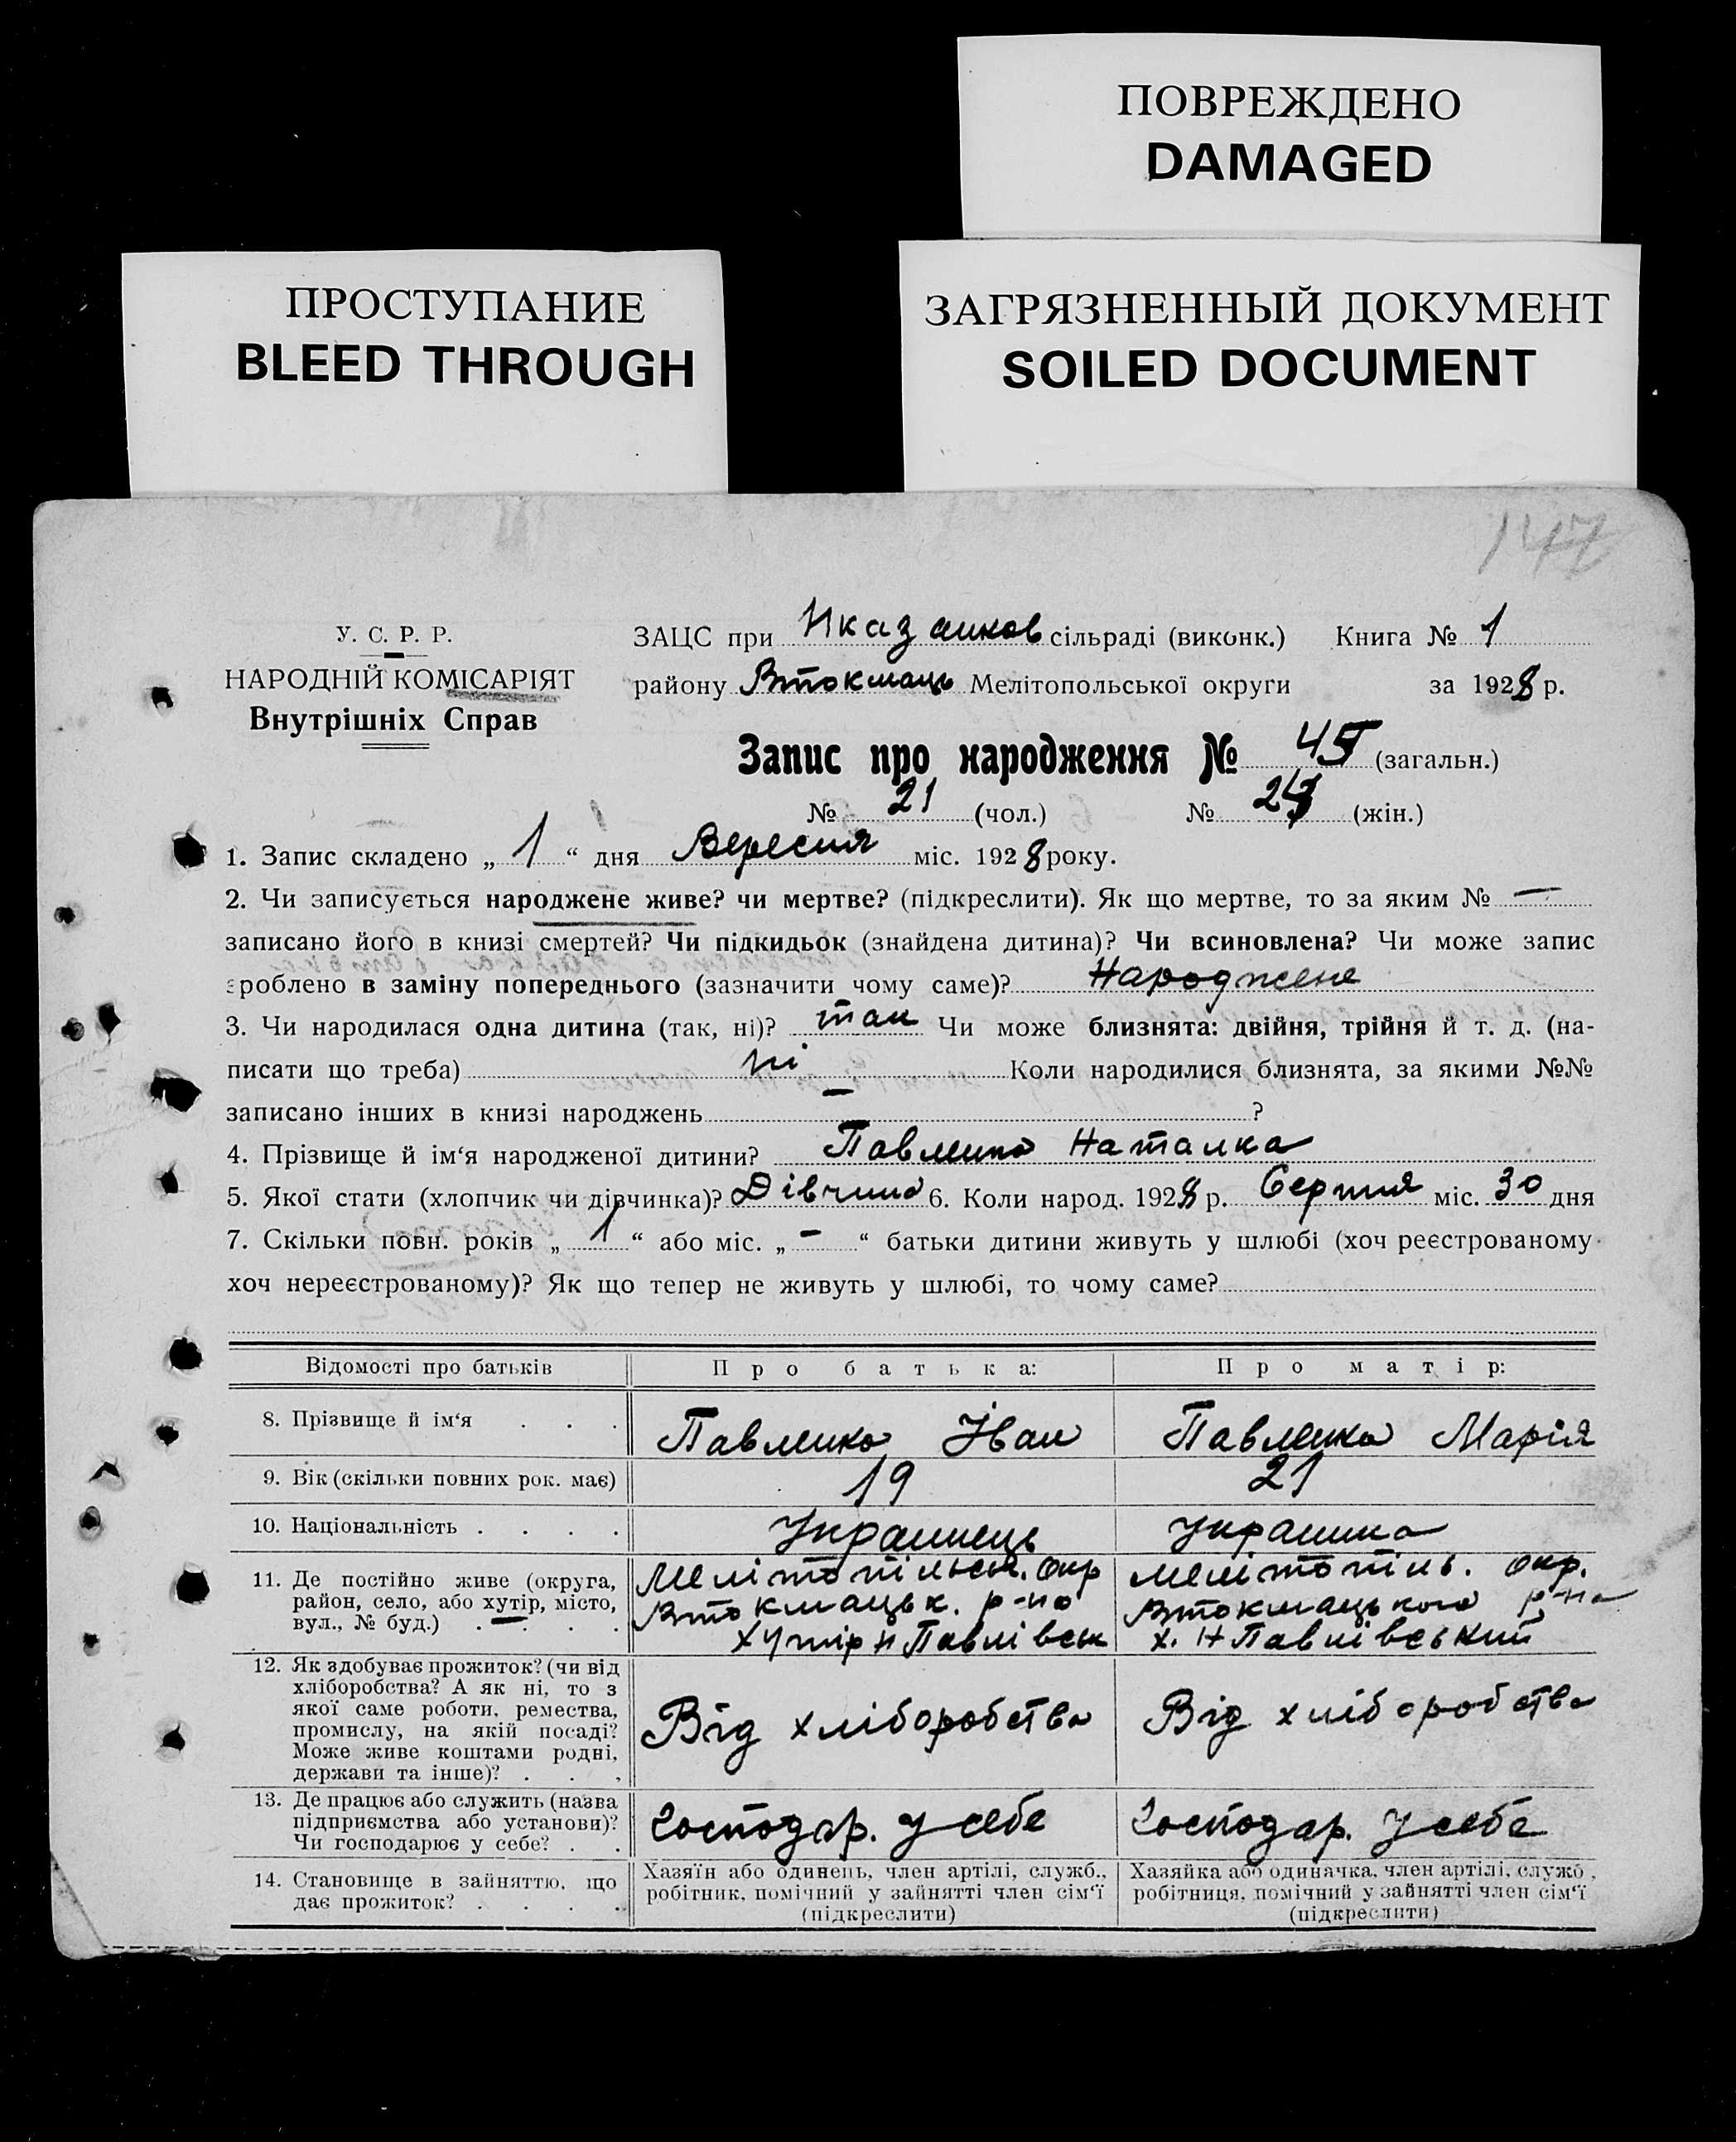 ПОВРЕЖДЕНО
DAMAGED
ПРОСТУПАНИЕ
BLEED THROUGH
ЗАГРЯЗНЕННЫЙ ДОКУМЕНТ
SOILED DOCUMENT
147
У. С. Р. Р.
НАРОДНІЙ КОМІСАРІЯТ
Внутрішніх Справ
ЗАЦС при сільраді (виконк.) Книга № 1
району Втокмаць Мелітопольської округи за 1928 р.
Запис про народження № 45 (загальн.)
№ 21 (чол.) № (жін.)
1. Запис складено „ 1 “ дня Вересня міс. 1928 року.
2. Чи записується народжене живе? чи мертве? (підкреслити). Як що мертве, то за яким № —
записано його в книзі смертей? Чи підкидьок (знайдена дитина)? Чи всиновлена? Чи може запис
зроблено в заміну попереднього (зазначити чому саме)? Народжене
3. Чи народилася одна дитина (так, ні)? так Чи може близнята: двійня, трійня й т. д. (на-
писати що треба) ні Коли народилися близнята, за якими №№
записано інших в книзі народжень — ?
4. Прізвище й ім‘я народженої дитини? Павленко Наталка
5. Якої стати (хлопчик чи дівчинка)? Дівчина 6. Коли народ. 1928 р. Серпня міс. 30 дня
7. Скільки повн. років „ 1 “ або міс. „ – “ батьки дитини живуть у шлюбі (хоч реєстрованому
хоч нереєстрованому)? Як що тепер не живуть у шлюбі, то чому саме?
Відомості про батьків Про батька: Про матір:
8. Прізвище й ім‘я . . . Павленко Іван Павленко Марія
9. Вік (скільки повних рок. має) 19 21
10. Національність . . . . Украинець Украинка
11. Де постійно живе (округа, Мелітопільськ. окр Мелітопіль. окр.
район, село, або хутір, місто, Втокмацьк. р-на Втокмацького р-на
вул., № буд.) . — . . . Хутір Н Павлівськ х. Н Павлівський
12. Як здобуває прожиток? (чи від
хліборобства? А як ні, то з
якої саме роботи, ремества, Від хліборобства Від хліборобства
промислу, на якій посаді?
Може живе коштами родні,
держави та інше)? . . .
13. Де працює або служить (назва
підприємства або установи)? Господар. у себе Господар. у себе
Чи господарює у себе? . .
14. Становище в зайняттю, що Хазяїн або одинець, член артілі, служб., Хазяйка або одиначка, член артілі, служб.,
дає прожиток? . . . . робітник, помічний у зайнятті член сім‘ї робітниця, помічний у зайнятті член сім‘ї
(підкреслити) (підкреслити)